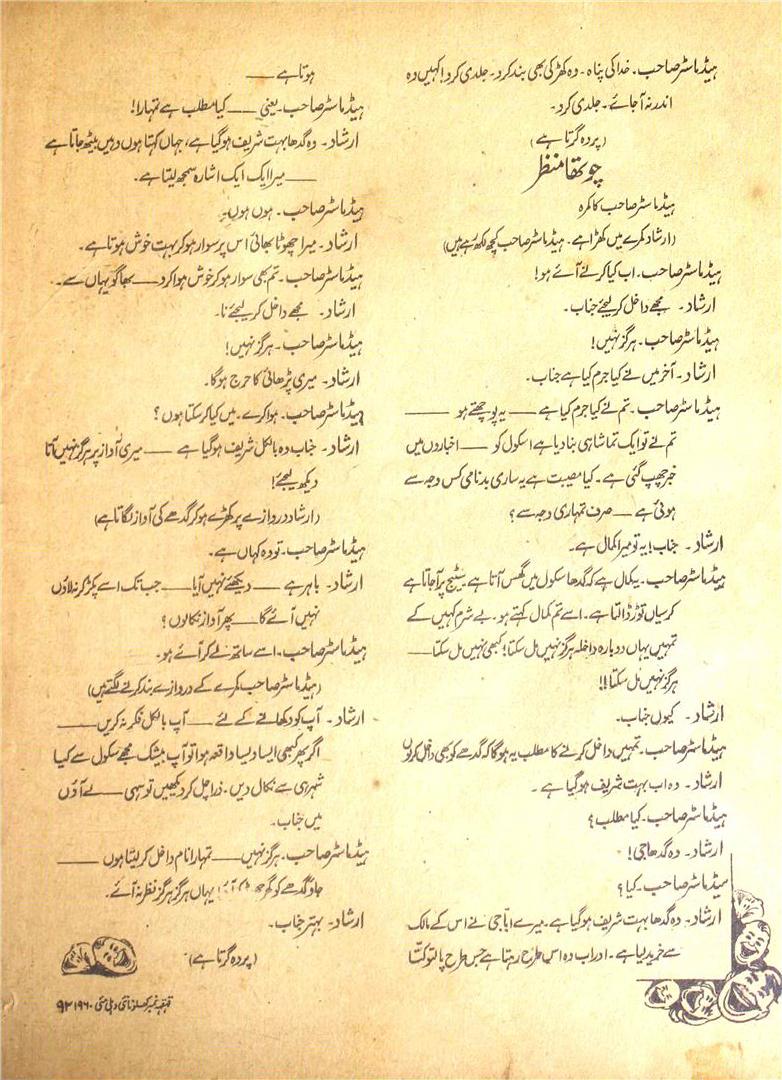 ہیڈماسٹر صاحب۔ خدا کی پناہ۔ وہ کھڑکی بھی بند کرد۔ جلدی کرو! کہیں وہ
اندر نہ آجائے۔ جلدی کرو۔
(پردہ گرتا ہے)
چوتھا منظر
ہیڈماسٹر صاحب کا کمرہ
(ارشاد کمرے میں کھڑا ہے۔ ہیڈماسٹر صاحب کچھ لکھ رہے ہیں)
ہیڈماسٹر صاحب۔ اب کیا کرنے آئے ہو!
ارشاد۔ مجھے داخل کر لیجئے جناب۔
ہیڈماسٹر صاحب۔ ہرگز نہیں!
ارشاد۔ آخر میں نے کیا جرم کیا ہے جناب۔
ہیڈماسٹر صاحب۔ تم نے کیا جرم کیا ہے —— یہ پوچھتے ہو ——
تم نے تو ایک تماشا ہی بنا دیا ہے اسکول کو —— اخباروں میں
خبر چھپ گئی ہے۔ کیا مصیبت ہے یہ ساری بدنامی کس وجہ سے
ہوئی ہے —— صرف تمہاری وجہ سے؟
ارشاد۔ جناب! یہ تو میرا کمال ہے۔
ہیڈماسٹر صاحب۔ یہ کمال ہے کہ گدھا سکول میں گھس آتا ہے سٹیج پر آجاتا ہے
کرسیاں توڑ ڈالتا ہے۔ اسے تم کمال کہتے ہو۔ بے شرم کہیں کے
تمہیں یہاں دوبارہ داخلہ ہرگز نہیں مل سکتا! کبھی نہیں مل سکتا ——
ہرگز نہیں مل سکتا!!
ارشاد۔ کیوں جناب۔
ہیڈماسٹر صاحب۔ تمہیں داخل کرنے کا مطلب یہ ہوگا کہ گدھے کو بھی داخل کرلوں
ارشاد۔ وہ اب بہت شریف ہوگیا ہے۔
ہیڈماسٹر صاحب۔ کیا مطلب؟
ارشاد۔ وہ گدھا جی!
ہیڈماسٹر صاحب۔ کیا؟
ارشاد۔ وہ گدھا بہت شریف ہوگیا ہے۔ میرے اباجی نے اس کے مالک
سے خرید لیا ہے۔ اور اب وہ اس طرح رہتا ہے جس طرح پالتو کتا
ہوتا ہے ——
ہیڈماسٹر صاحب۔ یعنی —— کیا مطلب ہے تمہارا!
ارشاد۔ وہ گدھا بہت شریف ہوگیا ہے، جہاں کہتا ہوں وہیں بیٹھ جاتا ہے
—— میرا ایک ایک اشارہ سمجھ لیتا ہے۔
ہیڈماسٹر صاحب۔ ہوں ہوں۔
ارشاد۔ میرا چھوٹا بھائی اس پر سوار ہوکر بہت خوش ہوتا ہے۔
ہیڈماسٹر صاحب۔ تم بھی سوار ہوکر خوش ہوا کرو —— بھاگو یہاں سے۔
ارشاد۔ مجھے داخل کر لیجئے نا۔
ہیڈماسٹر صاحب۔ ہرگز نہیں!
ارشاد۔ میری پڑھائی کا حرج ہوگا۔
ہیڈماسٹر صاحب۔ ہوا کرے۔ میں کیا کر سکتا ہوں؟
ارشاد۔ جناب وہ بالکل شریف ہوگیا ہے —— میری آواز پر ہرگز نہیں آتا
دیکھ لیجئے!
(ارشاد دروازے پر کھڑے ہوکر گدھے کی آواز لگاتا ہے)
ہیڈماسٹر صاحب۔ تو وہ کہاں ہے۔
ارشاد۔ باہر ہے —— دیکھئے نہیں آیا —— جب تک اسے پکڑ کر نہ لاؤں
نہیں آئے گا —— پھر آواز نکالوں؟
ہیڈماسٹر صاحب۔ اسے ساتھ لے کر آئے ہو۔
(ہیڈماسٹر صاحب کمرے کے دروازے بند کرنے لگتے ہیں)
ارشاد۔ آپ کو دکھانے کے لئے —— آپ بالکل فکر نہ کریں ——
اگر پھر کبھی ایسا ویسا واقعہ ہوا تو آپ بیشک مجھے سکول سے کیا
شہر ہی سے نکال دیں۔ ذرا چل کر دیکھیں تو سہی —— لے آؤں
میں جناب۔
ہیڈماسٹر صاحب۔ ہرگز نہیں —— تمہارا نام داخل کر لیتا ہوں ——
جاؤ گدھے کو گھر یہاں ہرگز ہرگز نظر نہ آئے۔
ارشاد۔ بہتر جناب۔
(پردہ گرتا ہے)
قہقہہ نمبر کھلونا نئی دہلی مئی ۱۹۶۰ ۹۲